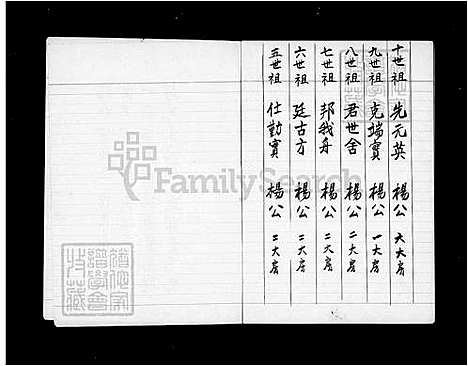 十世祖 先元英 楊公 六大房
九世祖 克端實 楊公 一大房
八世祖 君世舍 楊公 二大房
七世祖 邦我舟 楊公 二大房
六世祖 廷古方 楊公 二大房
五世祖 仕勤實 楊公 二大房
FamilySearch